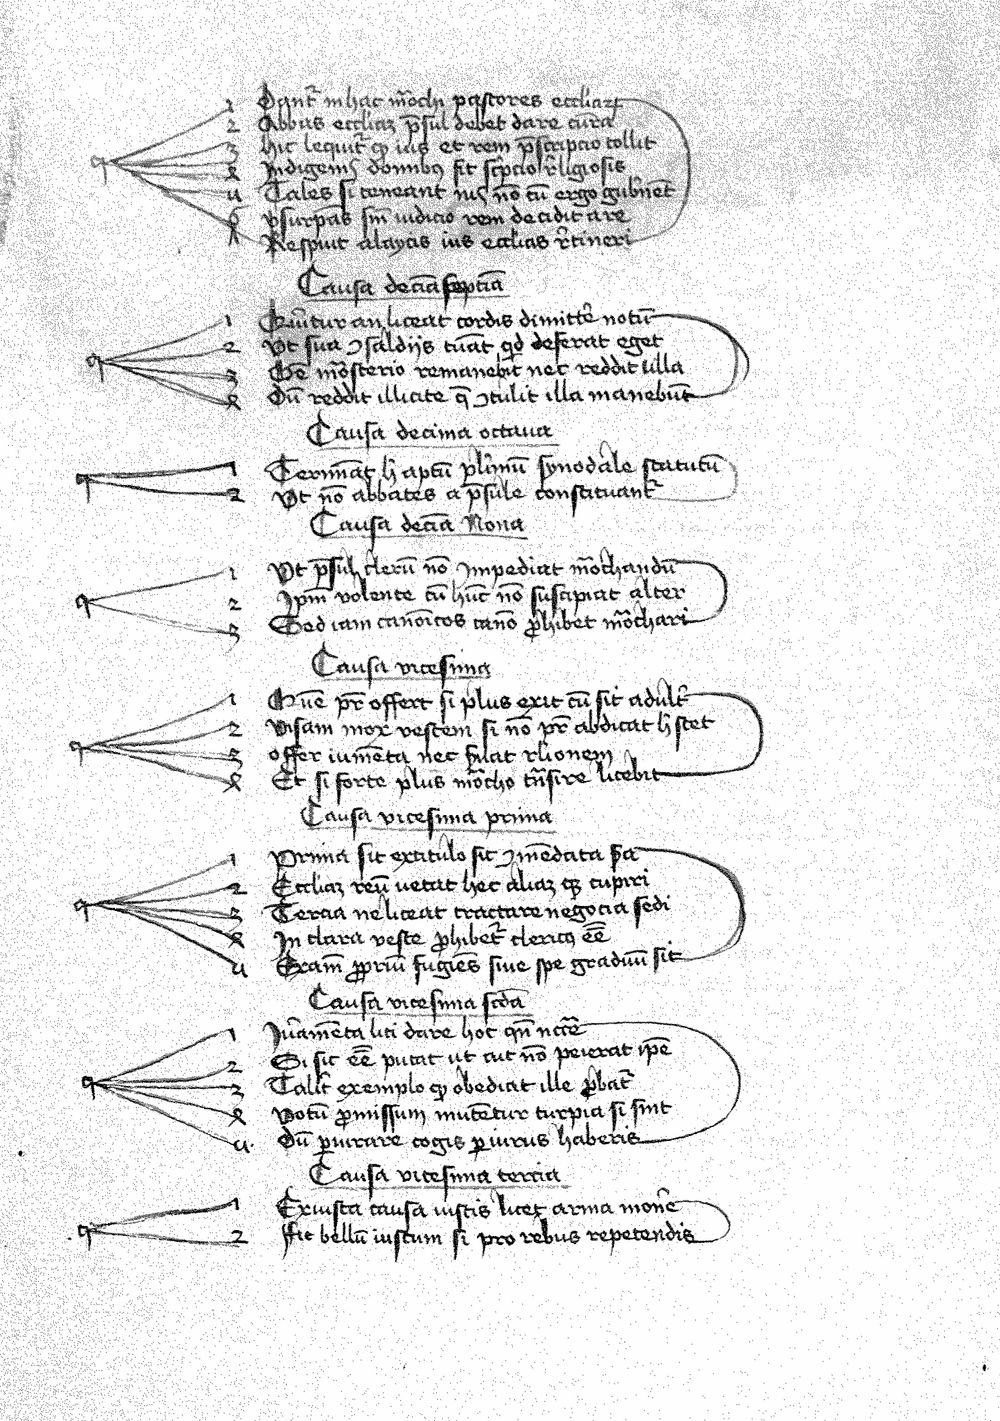 1 Dant᷑ in hac mo̅chi pastores eccliaꝝ
2 Abbas eccliaz p̅sul debet dare cura̅
3 hic lequit᷑ qꝫ ius et rem p̅scripcio tollit
4 Indigenis dominus sit sc̅pcio r̅ligiosis
5 Tales si teneant ius no̅ tu̅ ergo gub̅nent
6 vsurpas sm̅ iudicio rem decidit a re
7 Respuit a laycis ius ecclias r̅tineri
Causa deci̅a septi̅a
q 1 an liceat cordis dimitte̅ notu̅
2 Ut sua ꝯsaldijs tu̅at qd deferat eget
3 mo̅sterio remanebit nec reddit illa
4 Du̅ reddit illicite q̅ ꝯtulit illa manebu̅t
Causa decima octaua
q 1 Termi̅at h̅ aptu̅ pl̅imu̅ synodale statutu̅
2 Ut no̅ abbates a p̅sule constituant᷑
Causa deci̅a Nona
q 1 Ut p̅sul cleru̅ no̅ impediat mo̅chandu̅
2 Ipm̅ volente tu̅ hu̅c no̅ suscipiat alter
3 Sed iam cano̅icos cano̅ ꝓhibet mo̅chari
Causa vicesima
q 1 Que̅ pr̅ offert si plus exit cu̅ sit adult᷑
2 visam mox vestem si no̅ pr̅ abdicat h̅ stet
3 offer iume̅ta nec fi̅at rl̅ionem
4 Et si forte plus mo̅cho tn̅sire licebit
Causa vicesima prima
q 1 Prima sit extitulo sit ꝯme̅data s̅a
2 Eccliaz reu̅ vetat hec aliaz qꝫ cupiri
3 Tercia ne liceat tractare negocia sedi
4 In clara veste ꝓhibet᷑ clericus ee̅
5 Exam̅ ꝓpriu̅ fugie̅s siue spe graduu̅ sit
Causa vicesima scd̅a
q 1 Iu̅ame̅ta liti dare hoc qn̅ ncc̅e
2 Si sit ee̅ putat ut aut no̅ peierat ip̅e
3 Talit᷑ exemplo qꝫ obediat ille ꝓbat᷑
4 votu̅ ꝓmissum mute̅tur turpia si sint
5 Du̅ ꝑiurare cogis ꝑiurus haberis
Causa vicesima tercia
q 1 Ex iusta causa iustis licet arma moue̅
2 Sic bellu̅ iustum si pro rebus repetendis